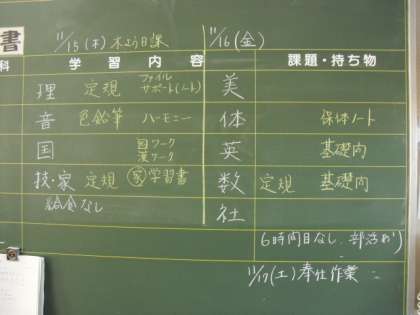 書
11/15(木) 木よう日課
11/16(金)
科
学習内容
課題・持ち物
理 定規 ファイル サポート(ノート)
美
音 色鉛筆 ハーモニー
体 保体ノート
国 国ワーク 漢ワーク
英 基礎内
技・家 定規 家 学習書
数 定規 基礎内
給食なし
社
6時間目なし、部活あり
11/17(土)奉仕作業